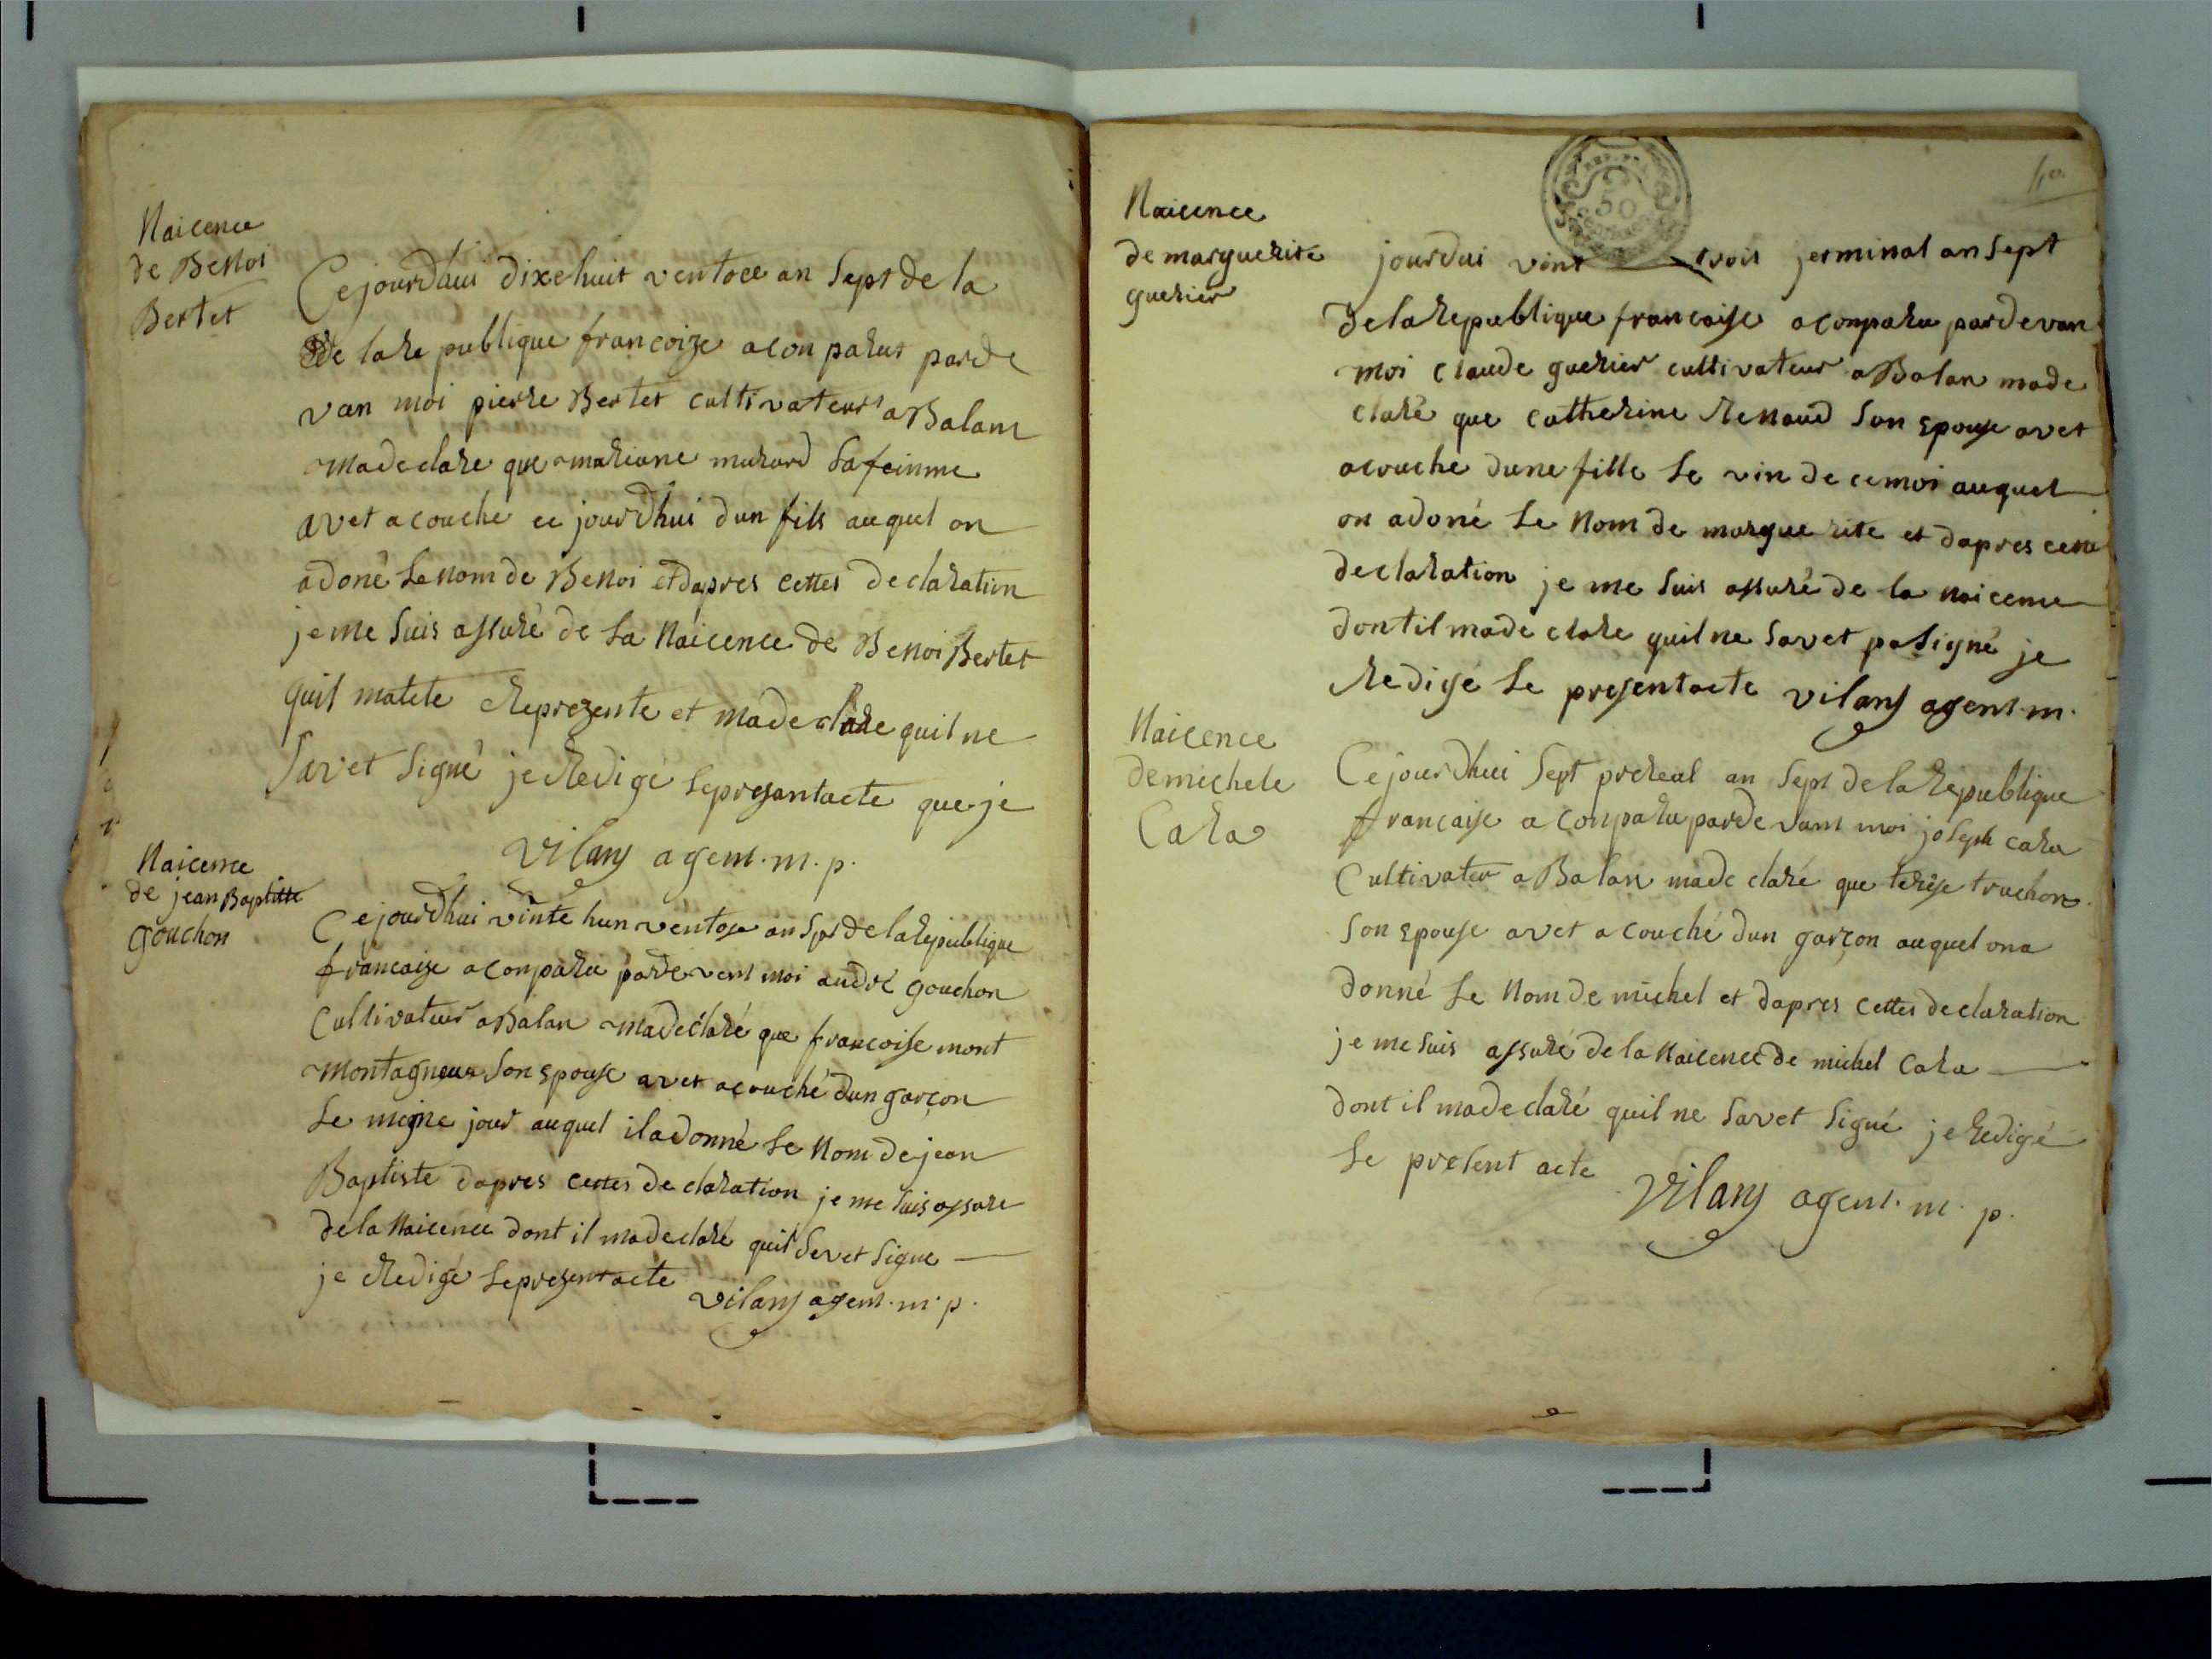 Naicence
de Benoi
Bertet
Cejourdaui dixehuit ventoce an Sept de la
de lare publique francoize acon parut parde
van moi pierre Bertet cultivateur aBalam
madeclare que mariane murard Safeimme
avet acouche ce jourdhui dun fils auquel on
adoné Lenom de Benoi etdapres cettes declaration
jeme Suis assuré de La Naicence de Benoi Bertet
quil matete Reprezente et madeclare quil ne
Savet Signé jeRedigé Lepresantacte que je
Vilany agent.m.p.
Naicence
de jean Baptitte
gouchon
Cejourdhui vinte hun ventose an Spt de laRepublique
francaise aconparu pardevent moi andré gouchon
Cultivateur aBalan madeclaré que francoise mont
montagneux Son Epouse avet acouché dun garçon
Le meine jour auquel iladonné Le Nom de jean
Baptiste dapres cettes declaration je me Suis assure
dela Naicence dont il madeclaré quil Sevet Signe
je Redigé Lepresentacte Vilany agent.m.p.
10.
50
Naicence
demarguerite
guerier
jourdui vint trois jerminal an Sept
delaRepublique francaise aconparu pardevan
moi Claude guerier cultivateur aBalan made
claré que catherine Renaud Son Epouse avet
acouche dune fille Le vin de cemoi auquel
on adoné Le Nom de marguerite et dapres cette
declaration je me Suis assuré de la naicence
dontil madeclare quil ne Savet paSigné je
Redigé Le presentacte Vilany agent.m.
Naicence
demichele
Cara
Cejourdhui Sept prereal an Sept de laRepublique
francaise aconparu pardevant moi joseph cara
Cultivateur aBalan madeclaré que terèse truchon
Son Epouse avet acouché dun garçon auquel ona
donné Le Nom de michel et dapres cettes declaration
je me Suis assuré de la Naicence de michel Cara
dont il madeclaré quil ne Savet Signé jeRedigé
Le present acte Vilany agent.m.p.